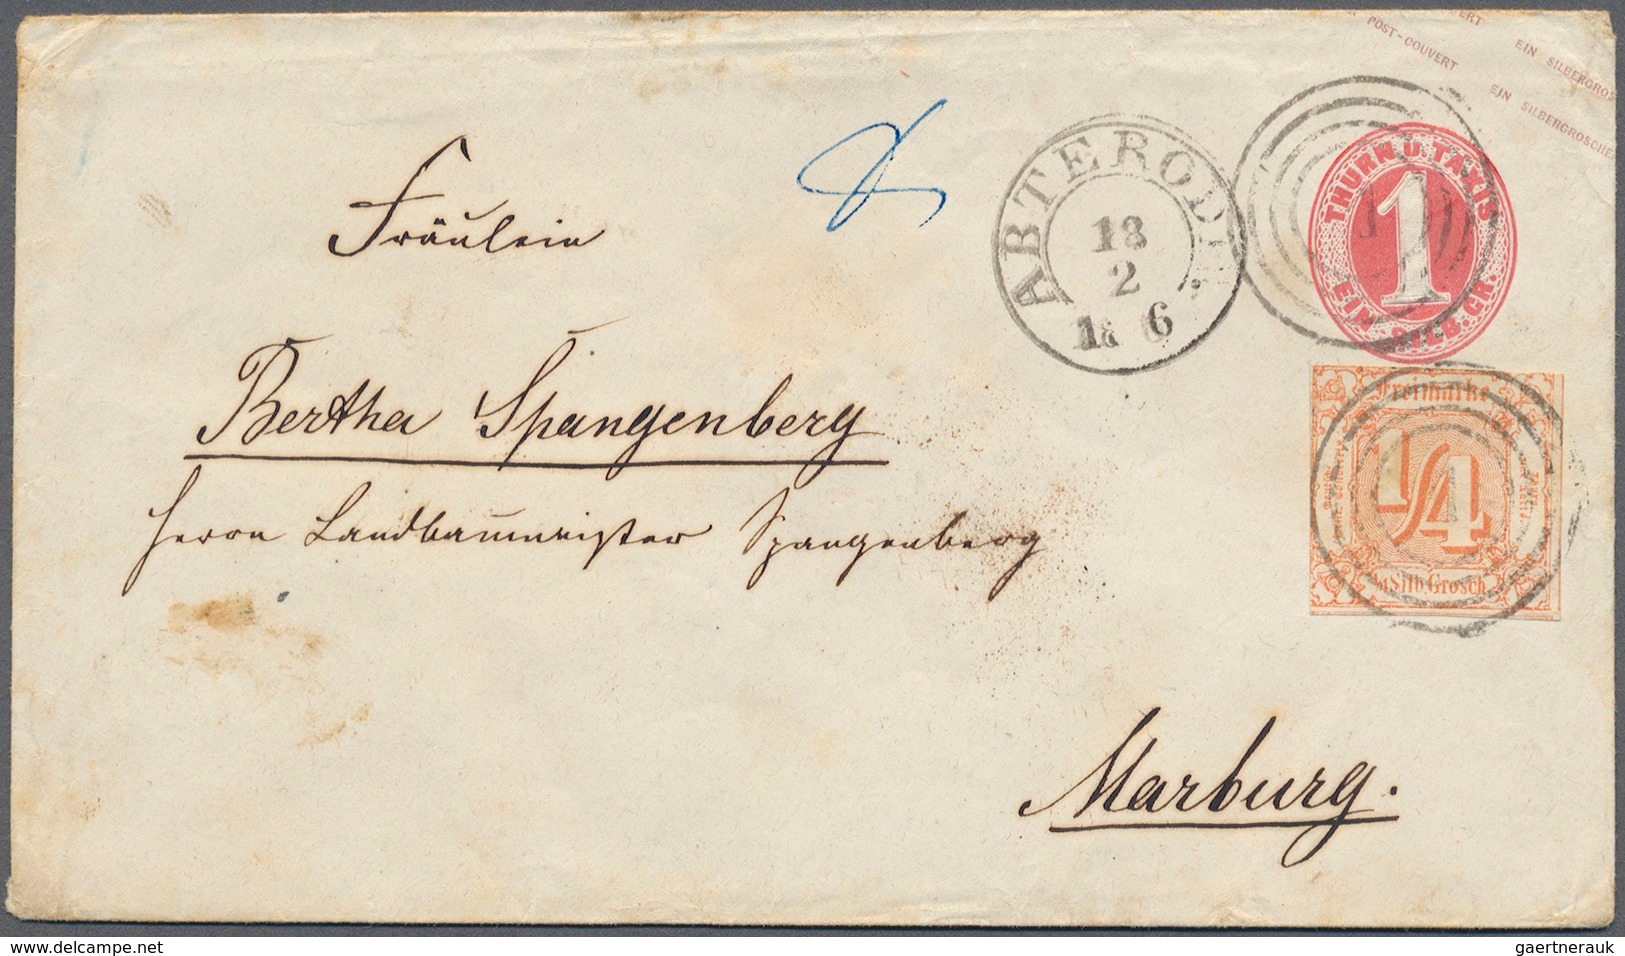 POST-COUVERT
EIN SILBERGROS
EIN SILBERGROSCHEN
THURN U. TAXIS
1
EIN SILB. GR.
ABTERODE
18
2
18 6
Freimarke
1/4
1/4 Silb. Grosch.
Fräulein
Bertha Spangenberg
Herrn Landbaumeister Spangenberg
Marburg.
www.delcampe.net
gaertnerauk